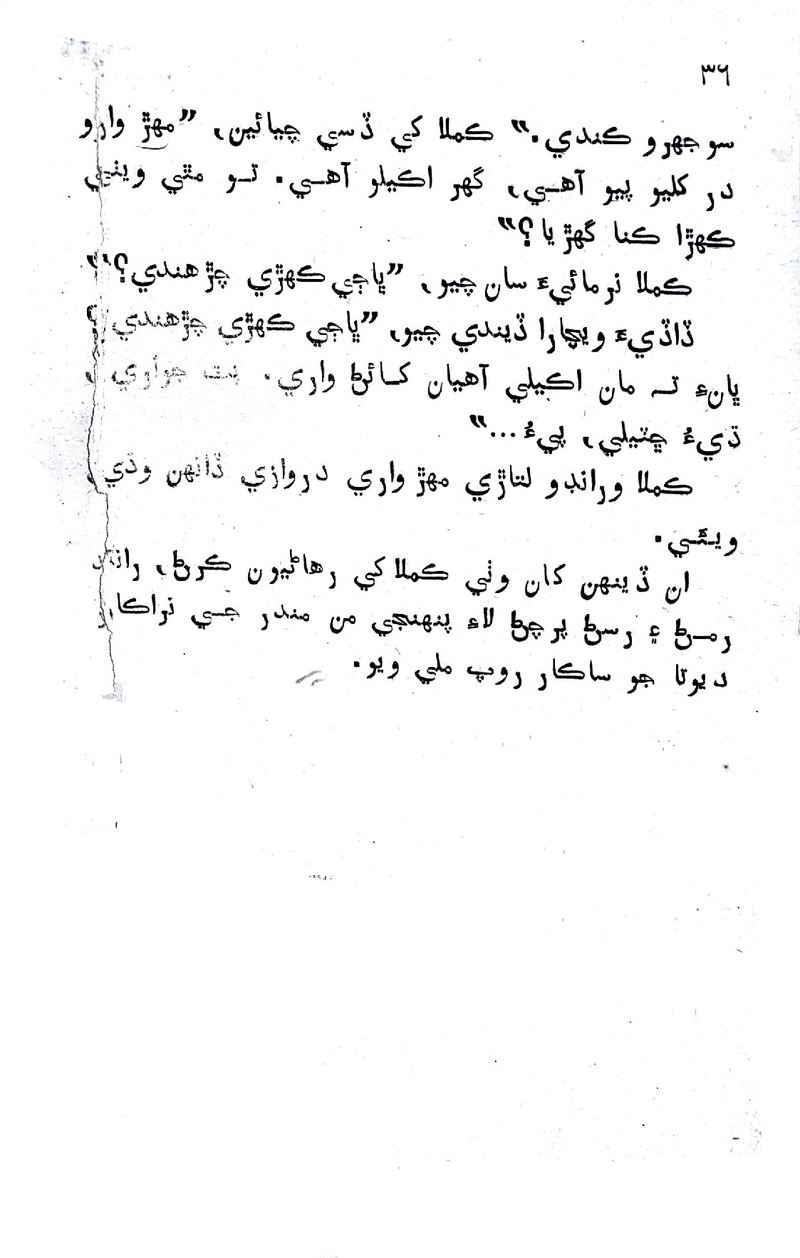 ٣٦
سوجهرو ڪندي.“ ڪملا کي ڏسي چيائين، ”مهڙ وارو
در کليو پيو آهي، گهر اڪيلو آهي. تو مٿي ويٺي
ڪهڙا ڪنا گهڙيا؟“
ڪملا نرمائيءَ سان چيو، ”ڀاڄي ڪهڙي چڙهندي؟“
ڏاڏيءَ ويچارا ڏيندي چيو، ”ڀاڄي ڪهڙي چڙهندي؟
ڀانءِ ته مان اڪيلي آهيان کائڻ واري. پٽ جواري،
ڌيءُ چٽيلي، پيءُ...“
ڪملا ورانڊو لتاڙي مهڙ واري دروازي ڏانهن وڌي
ويئي.
ان ڏينهن کان وٺي ڪملا کي رهاڻيون ڪرڻ، راند
رمڻ ۽ رسڻ پرچڻ لاءِ پنهنجي من مندر جي نراڪار
ديوتا جو ساڪار روپ ملي ويو.